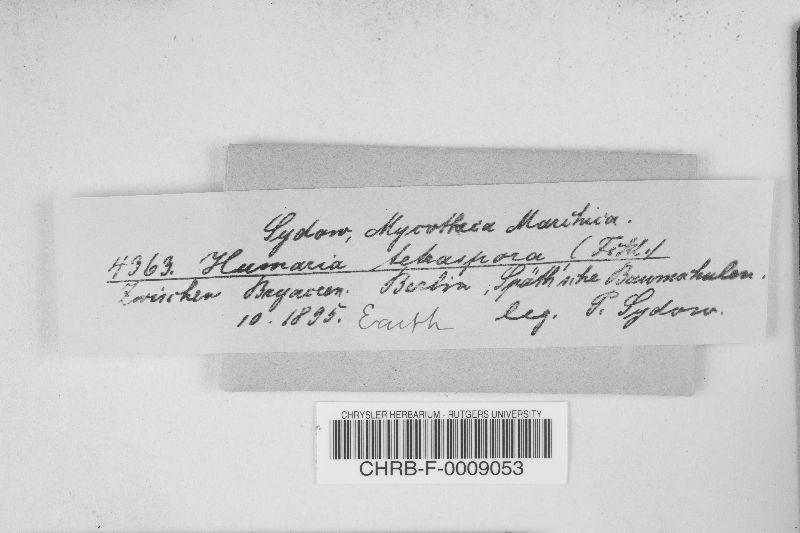 Sydow, Mycotheca Marchica.
4363. Humaria tetraspora (Fckl.)
Zwischen Bryaceen. Berlin, Späth'sche Baumschulen.
10. 1895. Earth leg. P. Sydow.
CHRYSLER HERBARIUM - RUTGERS UNIVERSITY
CHRB-F-0009053